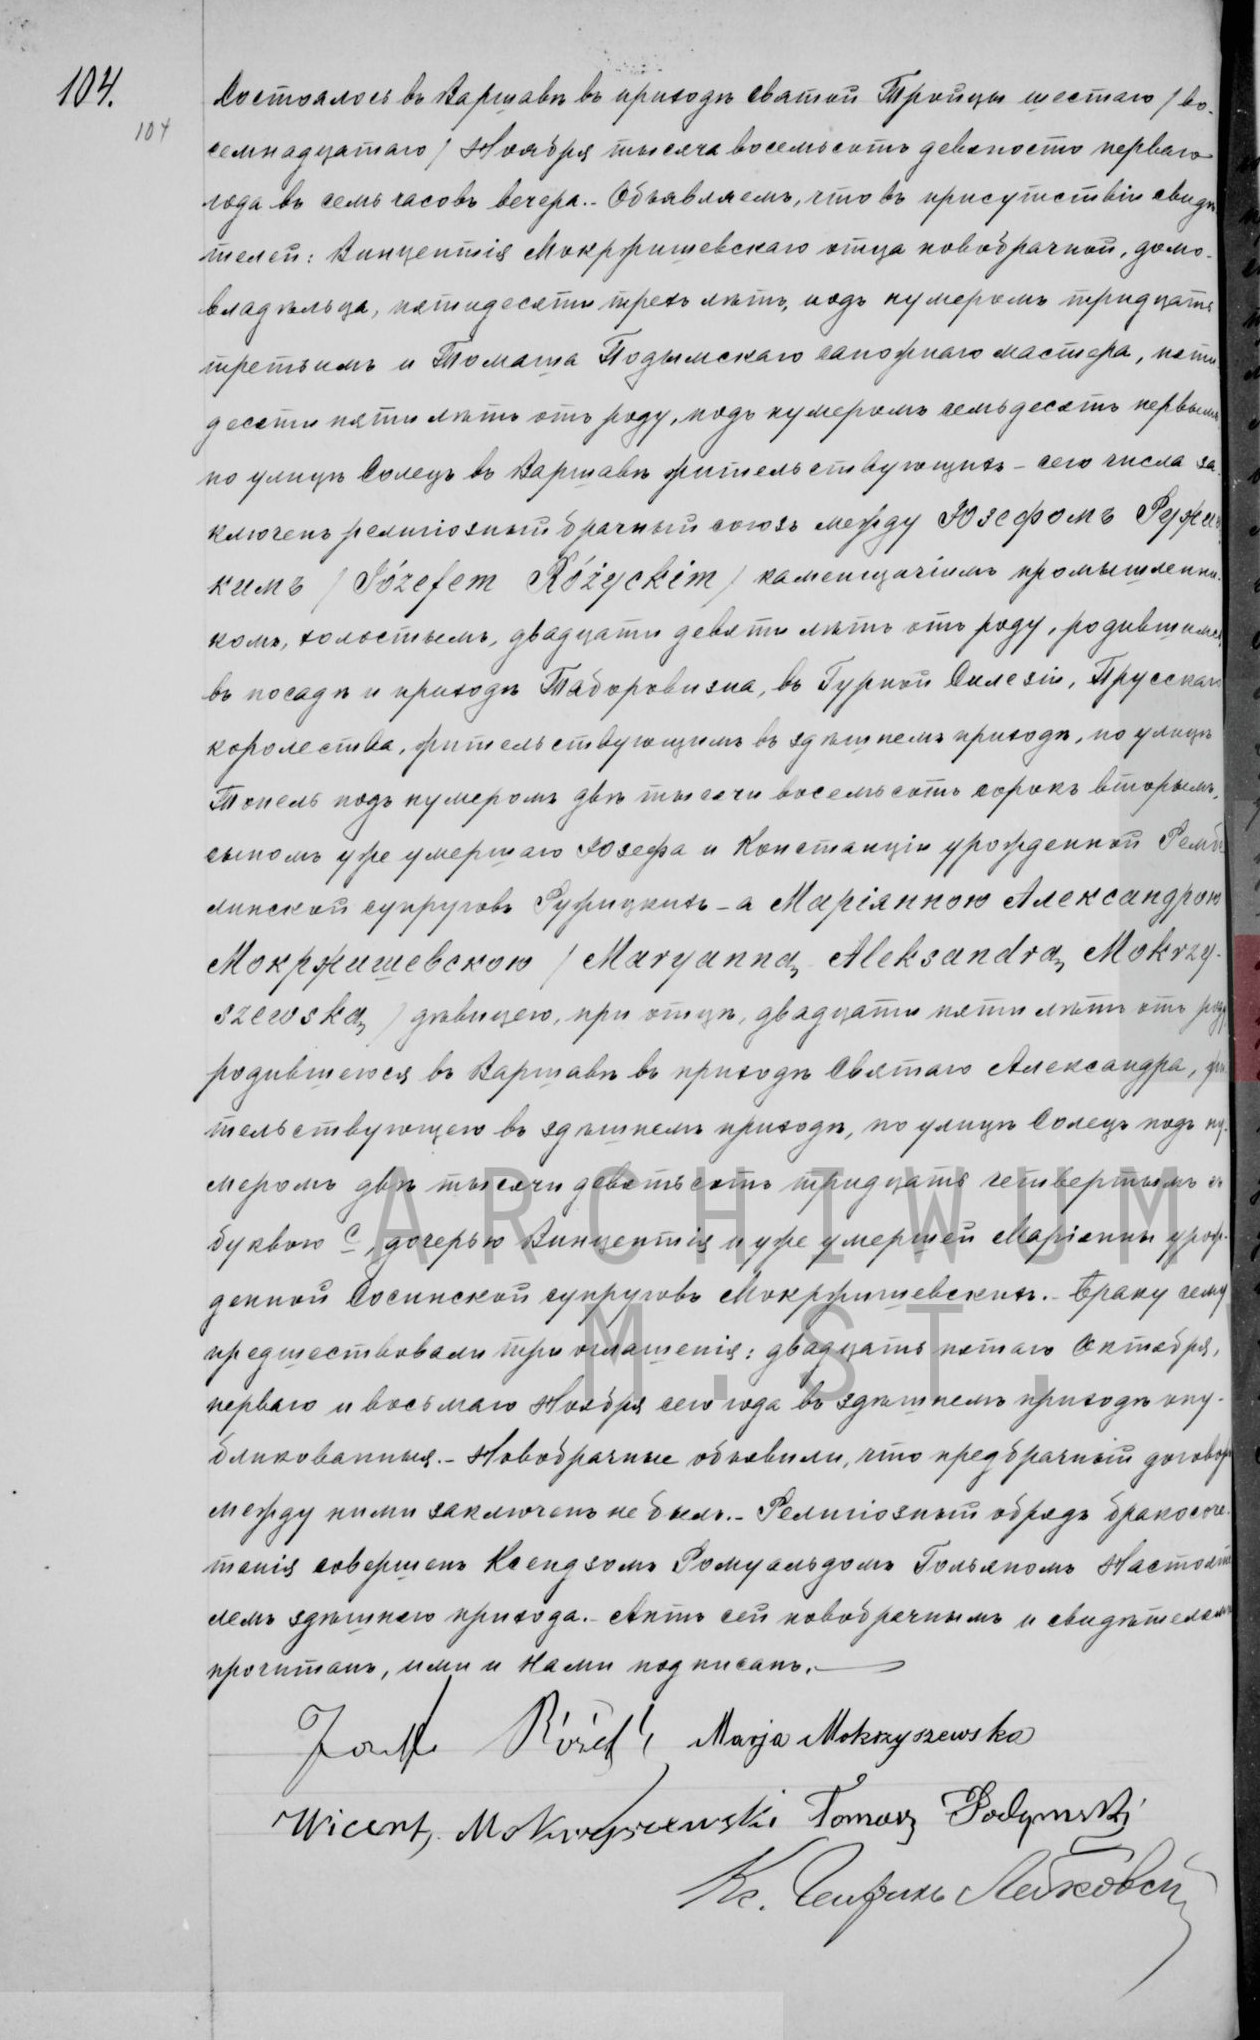 104.
104
Состоялось въ Варшавѣ въ приходѣ Святой Тройцы шестаго / во-
семнадцатаго / Ноября тысяча восемьсотъ девяносто перваго
года въ семь часовъ вечера.- Объявляемъ, что въ присутствіи свидѣ
телей: Винцентія Мокржишевскаго отца новобрачной, домо-
владѣльца, пятидесяти трехъ лѣтъ, подъ нумеромъ тридцать
третьимъ и Томаша Подымскаго сапожнаго мастера, пяти
десяти пяти лѣтъ отъ роду, подъ нумеромъ семьдесятъ первымъ
по улицѣ Солецъ въ Варшавѣ жительствующихъ - сего числа за-
ключенъ религіозный брачный союзъ между Юзефомъ Ружиц
кимъ / Józefem Różyckim / каменщичіимъ промышленни-
комъ, холостымъ, двадцати девяти лѣтъ отъ роду, родившимся
въ посадѣ и приходѣ Таборовизна, въ Гурной Силезіи, Прусскаго
королества, жительствующимъ въ здѣшнемъ приходѣ, по улицѣ
Топель подъ нумеромъ двѣ тысячи восемьсотъ сорокъ вторымъ,
сыномъ уже умершаго Юзефа и Констанціи урожденной Ремб
линской супруговъ Ружицкихъ - а Маріянною Александрою
Мокржишевскою / Maryanną Aleksandrą Mokrzy-
szewską / дѣвицею, при отцѣ, двадцати пяти лѣтъ отъ роду
родившеюся въ Варшавѣ въ приходѣ Святаго Александра, жи
тельствующею въ здѣшнемъ приходѣ, по улицѣ Солецъ подъ ну-
меромъ двѣ тысячи девятьсотъ тридцать четвертымъ съ
буквою С, дочерью Винцентія и уже умершей Маріянны урож-
денной Сосинской супруговъ Мокржишевскихъ.- Браку сему
предшествовали три оглашенія: двадцать пятаго Октября,
перваго и восьмаго Ноября сего года въ здѣшнемъ приходѣ опу-
бликованныя.- Новобрачные объявили, что предбрачный договоръ
между ними заключенъ не былъ.- Религіозный обрядъ бракосоче-
танія совершенъ Ксендзомъ Ромуальдомъ Гольяномъ Настояте
лемъ здѣшняго прихода.- Актъ сей новобрачнымъ и свидѣтелямъ
прочитанъ, ими и Нами подписанъ.
Marja Mokrzyszewska
Wicenty Mokrzyszewski Tomasz Podymski
Кс.
ARCHIWUM
M.ST.